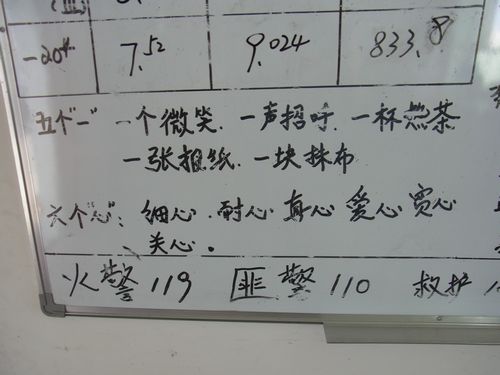 -20# 7.52 9.024 833.8
五个"一" 一个微笑.一声招呼.一杯热茶
一张报纸.一块抹布
六个"心": 细心.耐心.真心 爱心 宽心
关心.
火警 119 匪警 110 救护